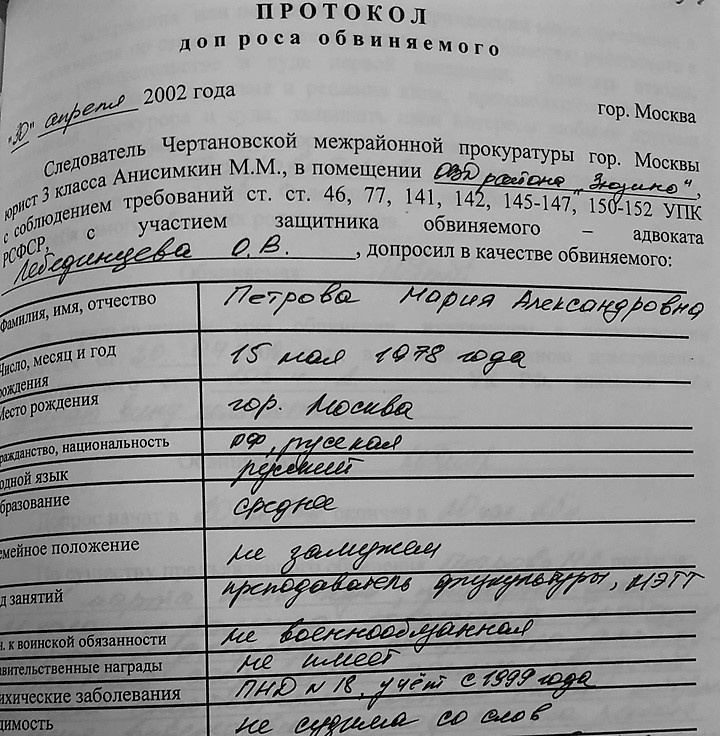 ПРОТОКОЛ
допроса обвиняемого
"30" апреля 2002 года
гор. Москва
Следователь Чертановской межрайонной прокуратуры гор. Москвы
юрист 3 класса Анисимкин М.М., в помещении ОВД района „Зюзино",
с соблюдением требований ст. ст. 46, 77, 141, 142, 145-147, 150-152 УПК
РСФСР, с участием защитника обвиняемого – адвоката
Лебединцева О.В., допросил в качестве обвиняемого:
Фамилия, имя, отчество Петрова Мария Александровна
Число, месяц и год рождения 15 мая 1978 года
Место рождения гор. Москва
ражданство, национальность РФ, русская
одной язык русский
бразование среднее
емейное положение не замужем
д занятий преподаватель физкультуры, МЭТТ
н. к воинской обязанности не военнообязанная
авительственные награды не имеет
ихические заболевания ПНД N 18, учёт с 1999 года
димость не судима со слов